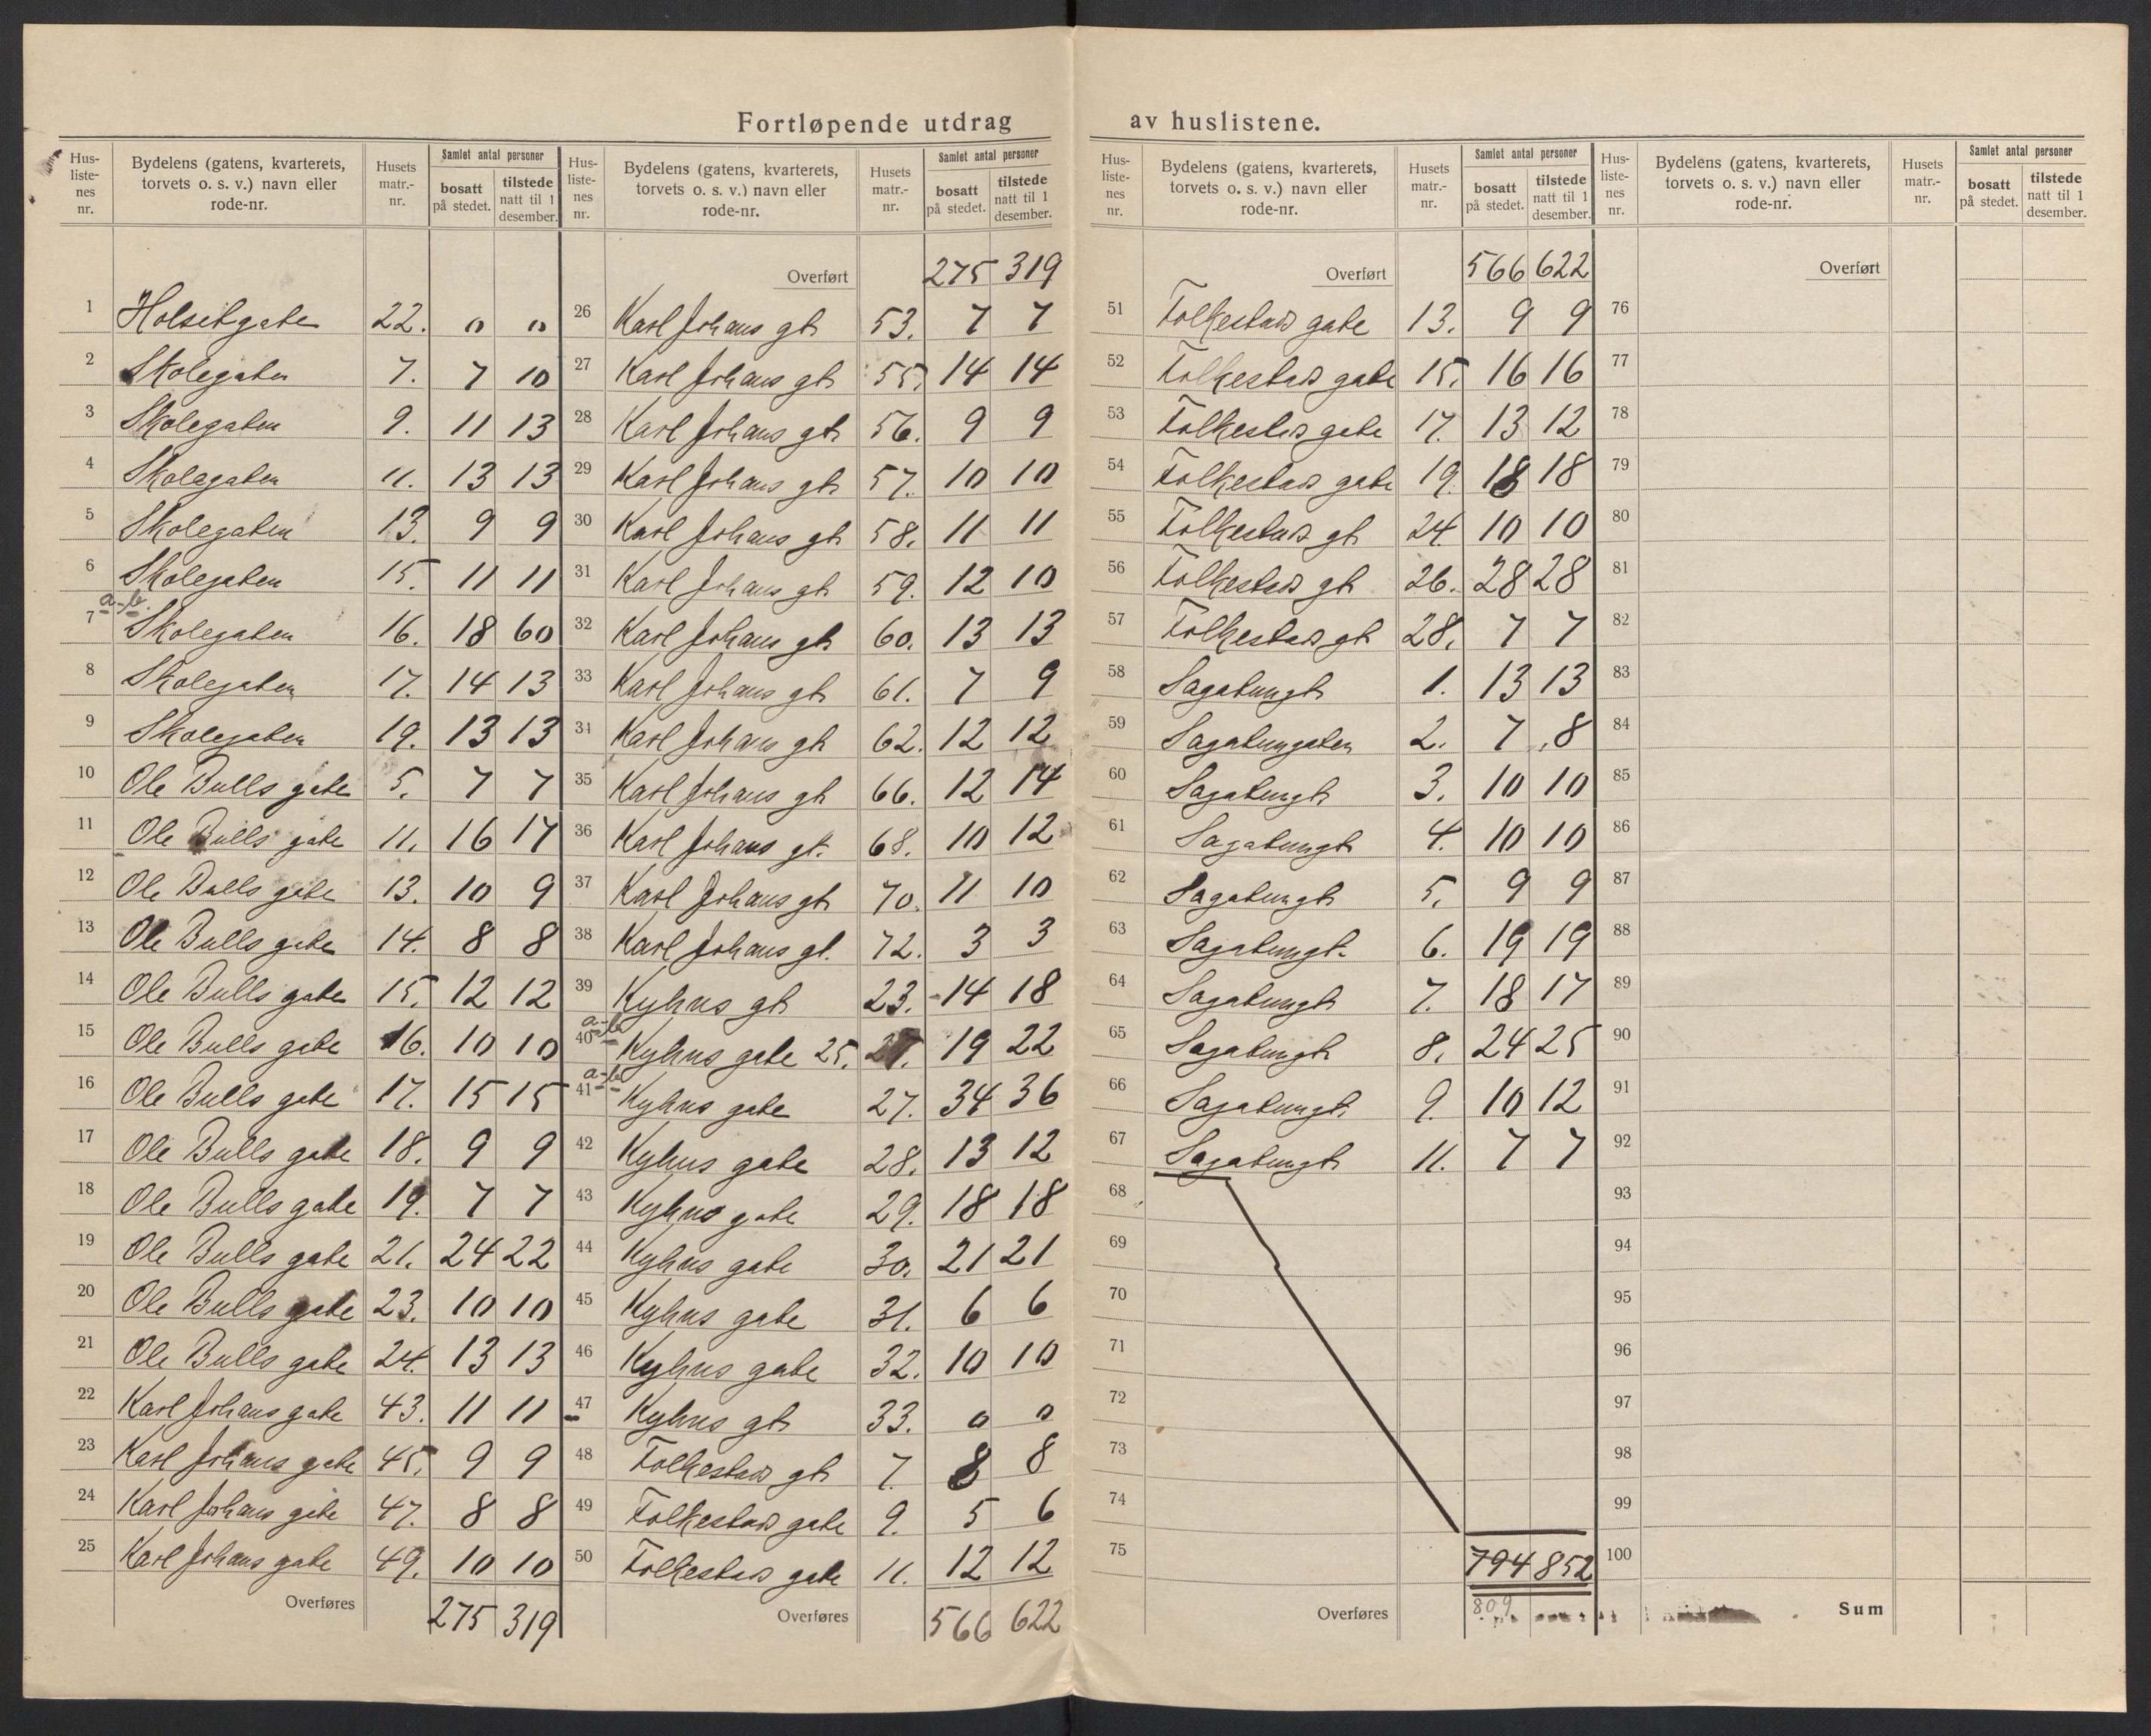 Fortløpende utdrag av huslistene.
Hus-listenes nr. | Bydelens (gatens, kvarterets, torvets o. s. v.) navn eller rode-nr. | Husets matr.-nr. | Samlet antal personer bosatt på stedet. | tilstede natt til 1 desember.
1 Holsetgaten 22. 0 0
2 Skolegaten 7. 7 10
3 Skolegaten 9. 11 13
4 Skolegaten 11. 13 13
5 Skolegaten 13. 9 9
6 Skolegaten 15. 11 11
7 a-b. Skolegaten 16. 18 60
8 Skolegaten 17. 14 13
9 Skolegaten 19. 13 13
10 Ole Bulls gate 5. 7 7
11 Ole Bulls gate 11. 16 17
12 Ole Bulls gate 13. 10 9
13 Ole Bulls gate 14. 8 8
14 Ole Bulls gate 15. 12 12
15 Ole Bulls gate 16. 10 10
16 Ole Bulls gate 17. 15 15
17 Ole Bulls gate 18. 9 9
18 Ole Bulls gate 19. 7 7
19 Ole Bulls gate 21. 24 22
20 Ole Bulls gate 23. 10 10
21 Ole Bulls gate 24. 13 13
22 Karl Johans gate 43. 11 11
23 Karl Johans gate 45. 9 9
24 Karl Johans gate 47. 8 8
25 Karl Johans gate 49. 10 10
Overføres 275 319
Hus-listenes nr. | Bydelens (gatens, kvarterets, torvets o. s. v.) navn eller rode-nr. | Husets matr.-nr. | Samlet antal personer bosatt på stedet. | tilstede natt til 1 desember.
Overført 275 319
26 Karl Johans gt. 53. 7 7
27 Karl Johans gt. 55. 14 14
28 Karl Johans gt. 56. 9 9
29 Karl Johans gt. 57. 10 10
30 Karl Johans gt. 58. 11 11
31 Karl Johans gt. 59. 12 10
32 Karl Johans gt. 60. 13 13
33 Karl Johans gt. 61. 7 9
34 Karl Johans gt. 62. 12 12
35 Karl Johans gt. 66. 12 14
36 Karl Johans gt. 68. 10 12
37 Karl Johans gt. 70. 11 10
38 Karl Johans gt. 72. 3 3
39 Kyhns gt. 23. 14 18
40 a-b Kyhns gate 25. 19 22
41 a-b Kyhns gate 27. 34 36
42 Kyhns gate 28. 13 12
43 Kyhns gate 29. 18 18
44 Kyhns gate 30. 21 21
45 Kyhns gate 31. 6 6
46 Kyhns gate 32. 10 10
47 Kyhns gt. 33. 0 0
48 Folkestads gt. 7. 8 8
49 Folkestads gate 9. 5 6
50 Folkestads gate 11. 12 12
Overføres 566 622
Hus-listenes nr. | Bydelens (gatens, kvarterets, torvets o. s. v.) navn eller rode-nr. | Husets matr.-nr. | Samlet antal personer bosatt på stedet. | tilstede natt til 1 desember.
Overført 566 622
51 Folkestads gate 13. 9 9
52 Folkestads gate 15. 16 16
53 Folkestads gate 17. 13 12
54 Folkestads gate 19. 18 18
55 Folkestads gt. 24. 10 10
56 Folkestads gt. 26. 28 28
57 Folkestads gt. 28. 7 7
58 Sagatungt. 1. 13 13
59 Sagatungaten 2. 7 8
60 Sagatungt. 3. 10 10
61 Sagatungt. 4. 10 10
62 Sagatungt. 5. 9 9
63 Sagatungt. 6. 19 19
64 Sagatungt. 7. 18 17
65 Sagatungt. 8. 24 25
66 Sagatungt. 9. 10 12
67 Sagatungt. 11. 7 7
68
69
70
71
72
73
74
75 794 852
Overføres 809
Hus-listenes nr. | Bydelens (gatens, kvarterets, torvets o. s. v.) navn eller rode-nr. | Husets matr.-nr. | Samlet antal personer bosatt på stedet. | tilstede natt til 1 desember.
Overført
76
77
78
79
80
81
82
83
84
85
86
87
88
89
90
91
92
93
94
95
96
97
98
99
100
Sum